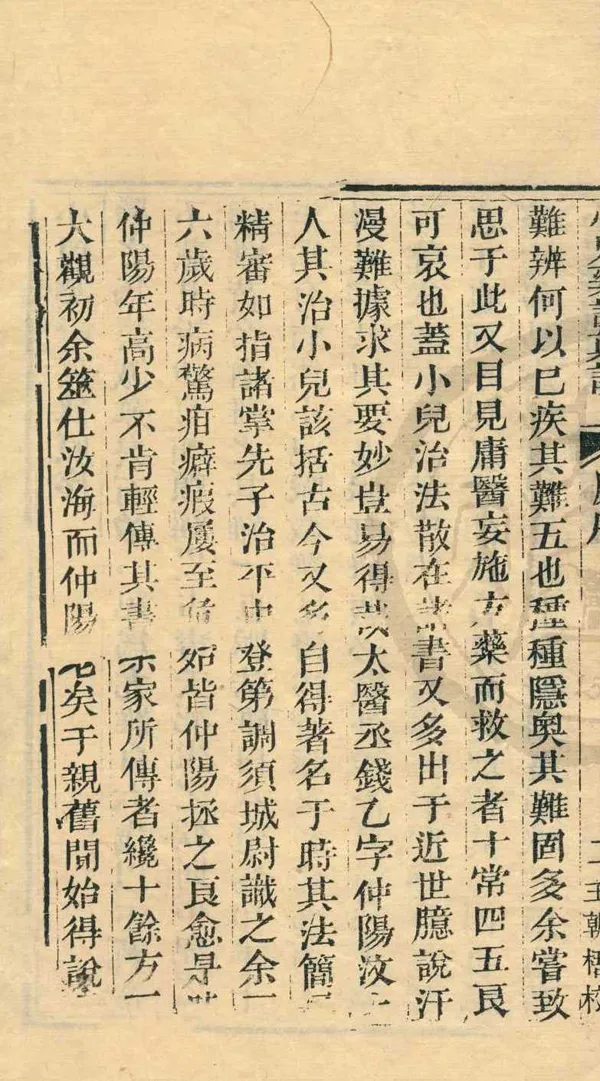 難辨何以已疾其難五也種種隱奧其難固多余嘗致
思于此又目見庸醫妄施方藥而救之者十常四五良
可哀也蓋小兒治法散在諸書又多出于近世臆說汗
漫難據求其要妙豈易得哉太醫丞錢乙字仲陽汶上
人其治小兒該括古今又多自得著名于時其法簡
精審如指諸掌先子治平中登第調須城尉識之余
六歲時病驚疳癖瘕屢至危殆皆仲陽拯之良愈是時
仲陽年高少不肯輕傳其書余家所傳者纔十餘方
大觀初余筮仕汝海而仲陽老矣于親舊間始得說
二 王朝梧校